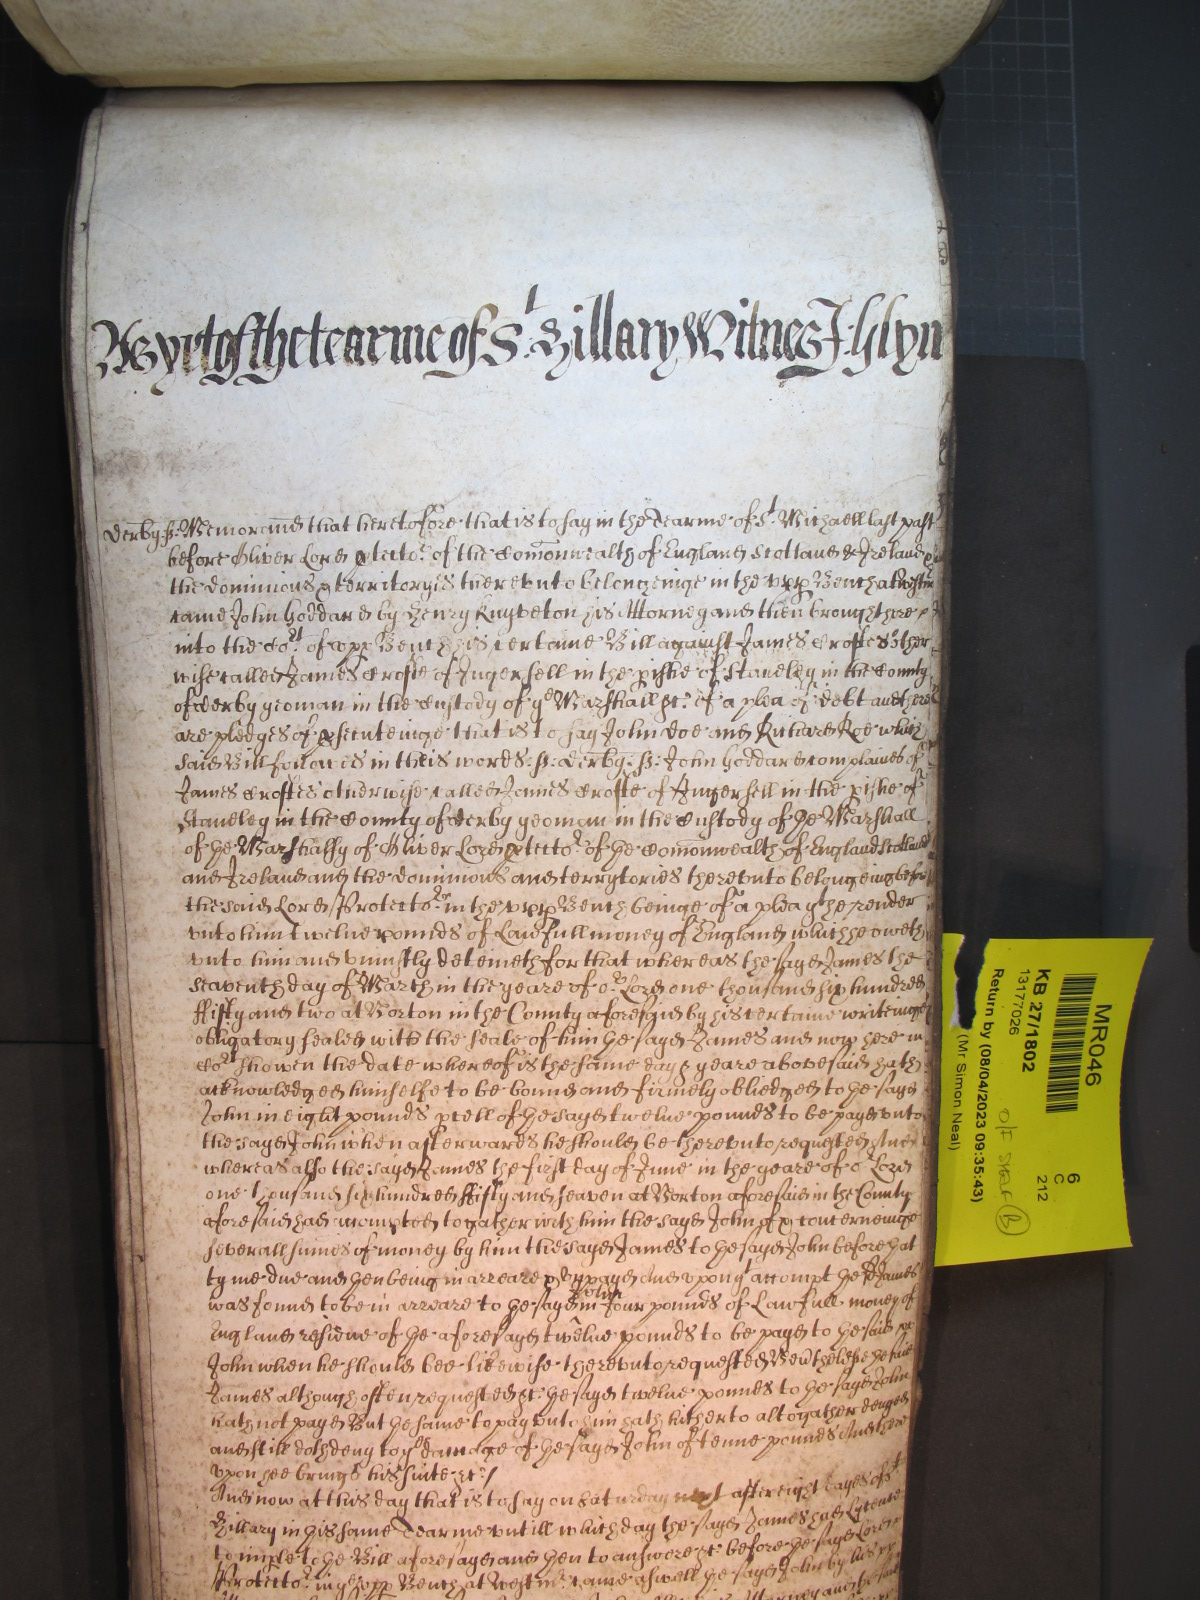 As yet of the tearme of St. Hillary Witnes J: Glyn
Derby: ss: Memorand that heretofore that is to say in the Tearme of St. Michaell last past
before Oliver Lord ptecto.r of the Comonwealth of England Scotland & Ireland &
the dominions & territoryes thereunto belongeinge in the upp Bench at Westmr
came John Goddard by Henry Knyveton his Attorney and then brought here
into the Co.rt of upp Bench his certaine Bill against James Crofte Other
wise called James Crofte of Ingersell in the pishe of Staneley in the County
of Derby yeoman in the Custody of ye Marshall &c: of a plea of Debt and there
are pledges of psecuteinge that is to say John Doe and Richard Roe which
said Bill followes in theis words: ss: Derby: ss: John Goddard complaines of
James Croftes otherwise called James Crofte of Ingersell in the pishe of
Staneley in the County of Derby yeoman in the Custody of the Marshall
of the Marshalsy of Oliver Lord ptecto.r of the Comonwealth of England Scotland
and Ireland and the dominions and terrytories thereunto belongeing before
the said Lord Protecto.r in the upp Bench beinge of a plea the render
unto him twelve pounds of Lawfull money of England which he oweth
unto him and uniustly deteineth for that whereas the sayd James the
seaventh day of March in the yeare of or. Lord one thousand six hundred
ffifty and two at Norton in the County aforesaid by his certaine writeinge
obligatory sealed with the seale of him the sayd James and now here in
Co.rt showen the date whereof is the same day & yeare abovesaid hath
acknowledged himselfe to be bound and firmely obliedged to the sayd
John in eight pounds pcell of the sayd twelve pounds to be payd unto
the sayd John when afterwards he should be thereunto requested And
whereas also the sayd James the first day of June in the yeare of or Lord
one thousand six hundred ffifty and seaven at Norton aforesaid in the County
aforesaid had accompted togather with him the sayd John of & concerneinge
severall sumes of money by him the sayd James to the sayd John before that
tyme due and then being in arreare & unpayd And upon yt accompt the sd James
was found to be in arreare to the sayd John in four pounds of Lawfull money of
England residue of the aforesayd twelve pounds to be payd to the said
John when he should bee likewise thereunto requested Neverthelesse the said
James although often requested &c: the sayd twelve pounds to the sayd John
hath not payd But the same to pay unto him hath hitherto altogather denyed
and still doth deny to ye damage of the sayd John of tenne pounds And there
upon hee brings his suite &c:/
And now at this day that is to say on Saturday next after eight dayes of St
Hillary in this same Tearme untill which day the sayd James had Lycence
to imple to the Bill aforesayd and then to answere &c: before the sayd Lord
Protecto.r in ye upp Bench at Westmr. came aswell the sayd John by his
MR046
KB 27/1802
13177026
Return by (08/04/2023 09:35:43)
(Mr Simon Neal)
6
C
212
O/F
B